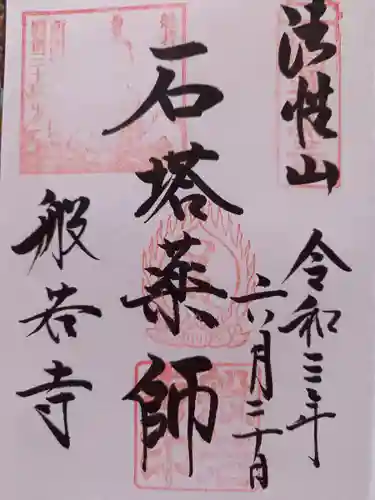 法性山
令和三年
六月三十日
石塔薬師
般若寺